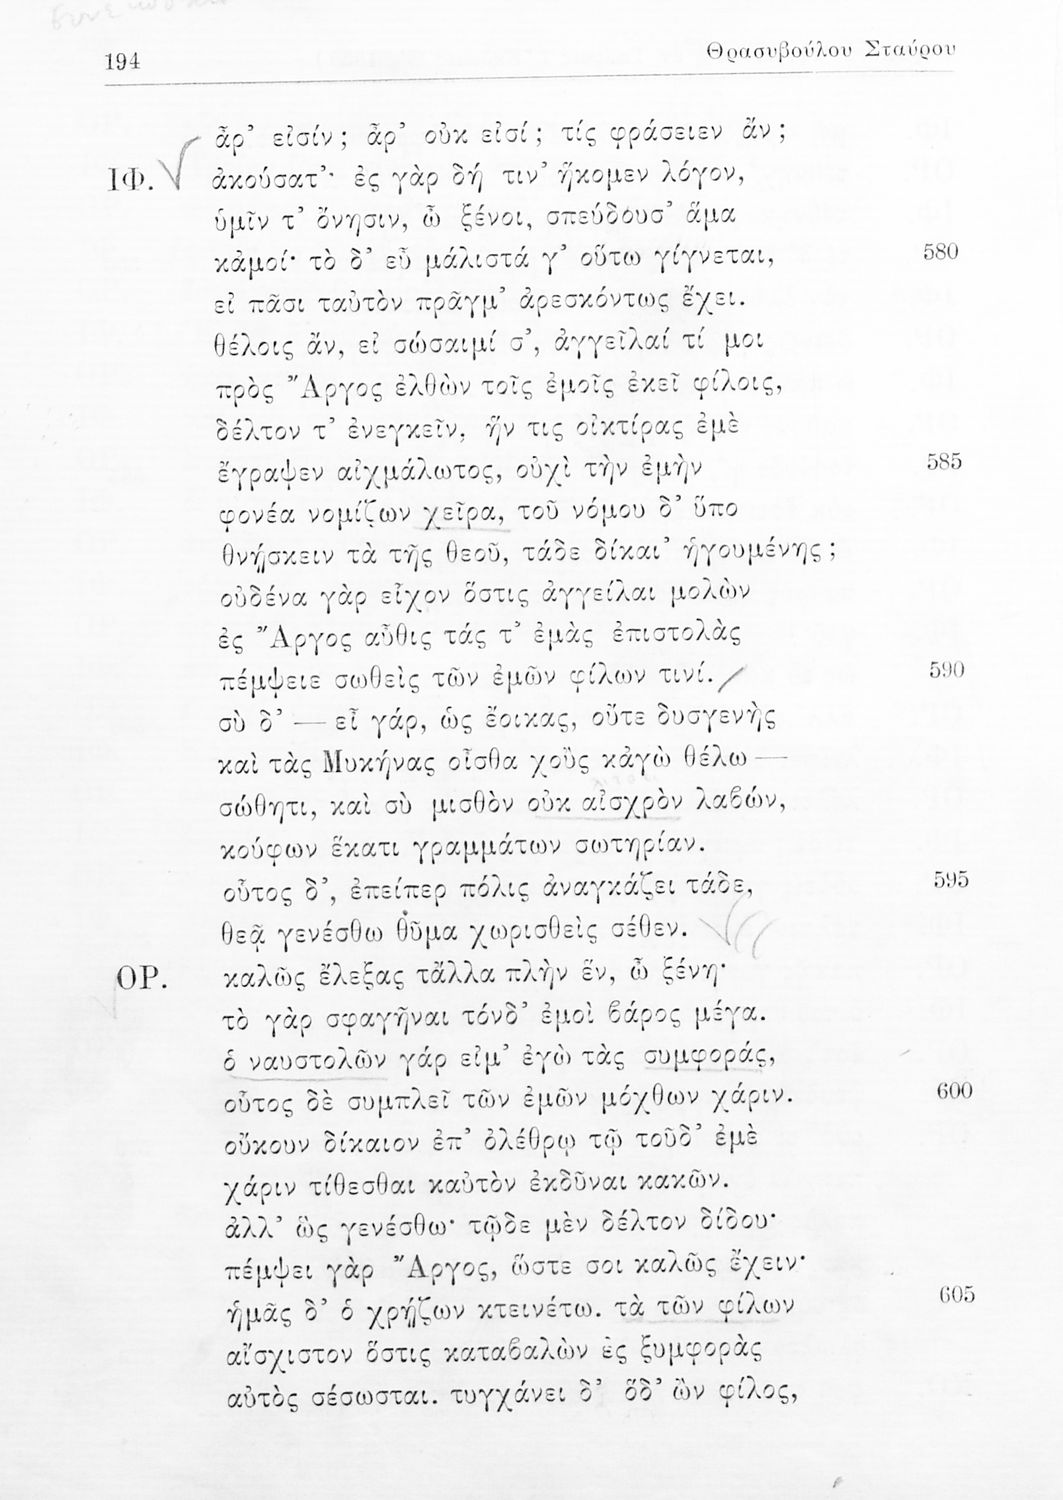 194
Θρασυβούλου Σταύρου
ἆρ’ εἰσίν ; ἆρ’ οὐκ εἰσί ; τίς φράσειεν ἄν ;
ΙΦ. ἀκούσατ’· ἐς γὰρ δή τιν’ ἥκομεν λόγον,
ὑμῖν τ’ ὄνησιν, ὦ ξένοι, σπεύδουσ’ ἅμα
κἀμοί· τὸ δ’ εὖ μάλιστά γ’ οὕτω γίγνεται, 580
εἰ πᾶσι ταὐτὸν πρᾶγμ’ ἀρεσκόντως ἔχει.
θέλοις ἄν, εἰ σώσαιμί σ’, ἀγγεῖλαί τί μοι
πρὸς Ἄργος ἐλθὼν τοῖς ἐμοῖς ἐκεῖ φίλοις,
δέλτον τ’ ἐνεγκεῖν, ἥν τις οἰκτίρας ἐμὲ
ἔγραψεν αἰχμάλωτος, οὐχὶ τὴν ἐμὴν 585
φονέα νομίζων χεῖρα, τοῦ νόμου δ’ ὕπο
θνῄσκειν τὰ τῆς θεοῦ, τάδε δίκαι’ ἡγουμένης ;
οὐδένα γὰρ εἶχον ὅστις ἀγγείλαι μολὼν
ἐς Ἄργος αὖθις τάς τ’ ἐμὰς ἐπιστολὰς
πέμψειε σωθεὶς τῶν ἐμῶν φίλων τινί. 590
σὺ δ’ — εἶ γάρ, ὡς ἔοικας, οὔτε δυσγενὴς
καὶ τὰς Μυκήνας οἶσθα χοὓς κἀγὼ θέλω —
σώθητι, καὶ σὺ μισθὸν οὐκ αἰσχρὸν λαβών,
κούφων ἕκατι γραμμάτων σωτηρίαν.
οὗτος δ’, ἐπείπερ πόλις ἀναγκάζει τάδε, 595
θεᾷ γενέσθω θῦμα χωρισθεὶς σέθεν.
ΟΡ. καλῶς ἔλεξας τἄλλα πλὴν ἕν, ὦ ξένη·
τὸ γὰρ σφαγῆναι τόνδ’ ἐμοὶ βάρος μέγα.
ὁ ναυστολῶν γάρ εἰμ’ ἐγὼ τὰς συμφοράς,
οὗτος δὲ συμπλεῖ τῶν ἐμῶν μόχθων χάριν. 600
οὔκουν δίκαιον ἐπ’ ὀλέθρῳ τῷ τοῦδ’ ἐμὲ
χάριν τίθεσθαι καὐτὸν ἐκδῦναι κακῶν.
ἀλλ’ ὣς γενέσθω· τῷδε μὲν δέλτον δίδου·
πέμψει γὰρ Ἄργος, ὥστε σοι καλῶς ἔχειν·
ἡμᾶς δ’ ὁ χρῄζων κτεινέτω. τὰ τῶν φίλων 605
αἴσχιστον ὅστις καταβαλὼν ἐς ξυμφορὰς
αὐτὸς σέσωσται. τυγχάνει δ’ ὅδ’ ὢν φίλος,